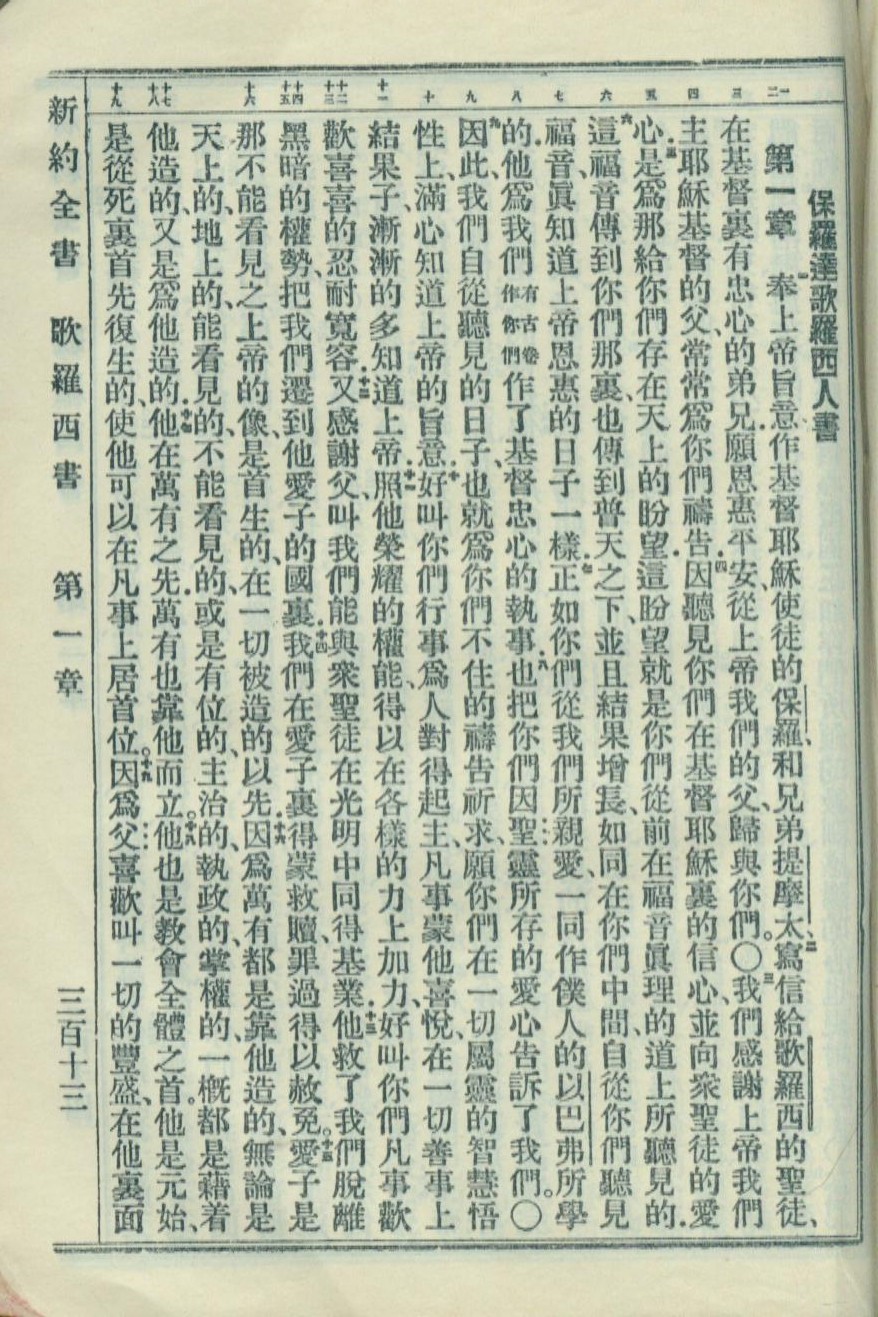 保羅達歌羅西人書
第一章 奉上帝旨意、作基督耶穌使徒的保羅、和兄弟提摩太、二寫信給歌羅西的聖徒、
在基督裏有忠心的弟兄、願恩惠平安、從上帝我們的父、歸與你們。〇三我們感謝上帝我們
主耶穌基督的父、常常爲你們禱告、四因聽見你們在基督耶穌裏的信心、並向衆聖徒的愛
心、五是爲那給你們存在天上的盼望、這盼望就是你們從前在福音眞理的道上所聽見的、
六這福音傳到你們那裏、也傳到普天之下、並且結果增長、如同在你們中間、自從你們聽見
福音、眞知道上帝恩惠的日子一樣、七正如你們從我們所親愛一同作僕人的以巴弗所學
的、他爲我們有古卷作你們作了基督忠心的執事、八也把你們因聖靈所存的愛心告訴了我們。〇
九因此、我們自從聽見的日子、也就爲你們不住的禱告祈求、願你們在一切屬靈的智慧悟
性上、滿心知道上帝的旨意、十好叫你們行事爲人對得起主、凡事蒙他喜悅、在一切善事上
結果子、漸漸的多知道上帝、十一照他榮耀的權能、得以在各樣的力上加力、好叫你們凡事歡
歡喜喜的忍耐寬容、十二又感謝父、叫我們能與衆聖徒在光明中同得基業、十三他救了我們脫離
黑暗的權勢、把我們遷到他愛子的國裏、十四我們在愛子裏得蒙救贖、罪過得以赦免。十五愛子是
那不能看見之上帝的像、是首生的、在一切被造的以先、十六因爲萬有都是靠他造的、無論是
天上的、地上的、能看見的、不能看見的、或是有位的、主治的、執政的、掌權的、一槪都是藉着
他造的、又是爲他造的、十七他在萬有之先、萬有也靠他而立。十八他也是教會全體之首。他是元始、
是從死裏首先復生的、使他可以在凡事上居首位。十九因爲父喜歡叫一切的豐盛、在他裏面
一 二 三 四 五 六 七 八 九 十 十一 十二 十三 十四 十五 十六 十七 十八 十九
新約全書 歌羅西書 第一章 三百十三